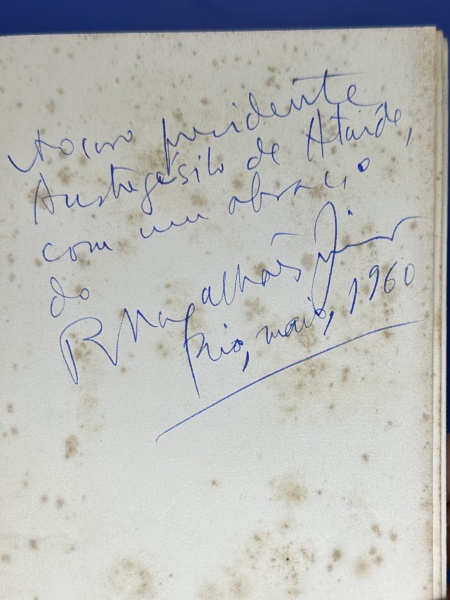 Ao caro presidente
Austregésilo de Ataíde,
com um abraço
do
R. Magalhães Júnior
Rio, maio, 1960